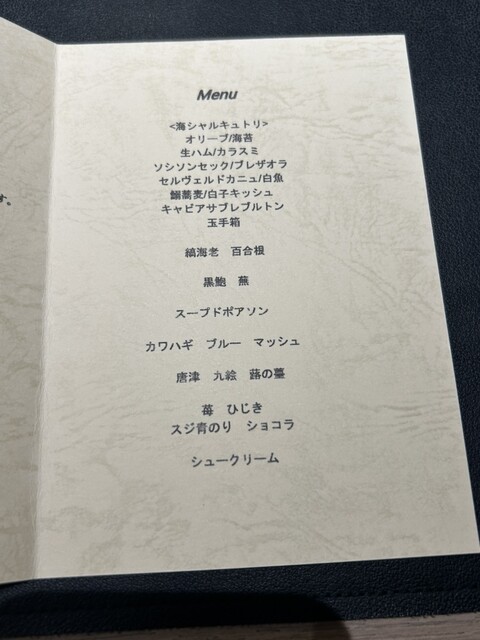 す。
Menu
<海シャルキュトリ>
オリーブ/海苔
生ハム/カラスミ
ソシソンセック/ブレザオラ
セルヴェルドカニュ/白魚
鰯蕎麦/白子キッシュ
キャビアサブレブルトン
玉手箱
縞海老 百合根
黒鮑 蕪
スープドポアソン
カワハギ ブルー マッシュ
唐津 九絵 蕗の薹
苺 ひじき
スジ青のり ショコラ
シュークリーム